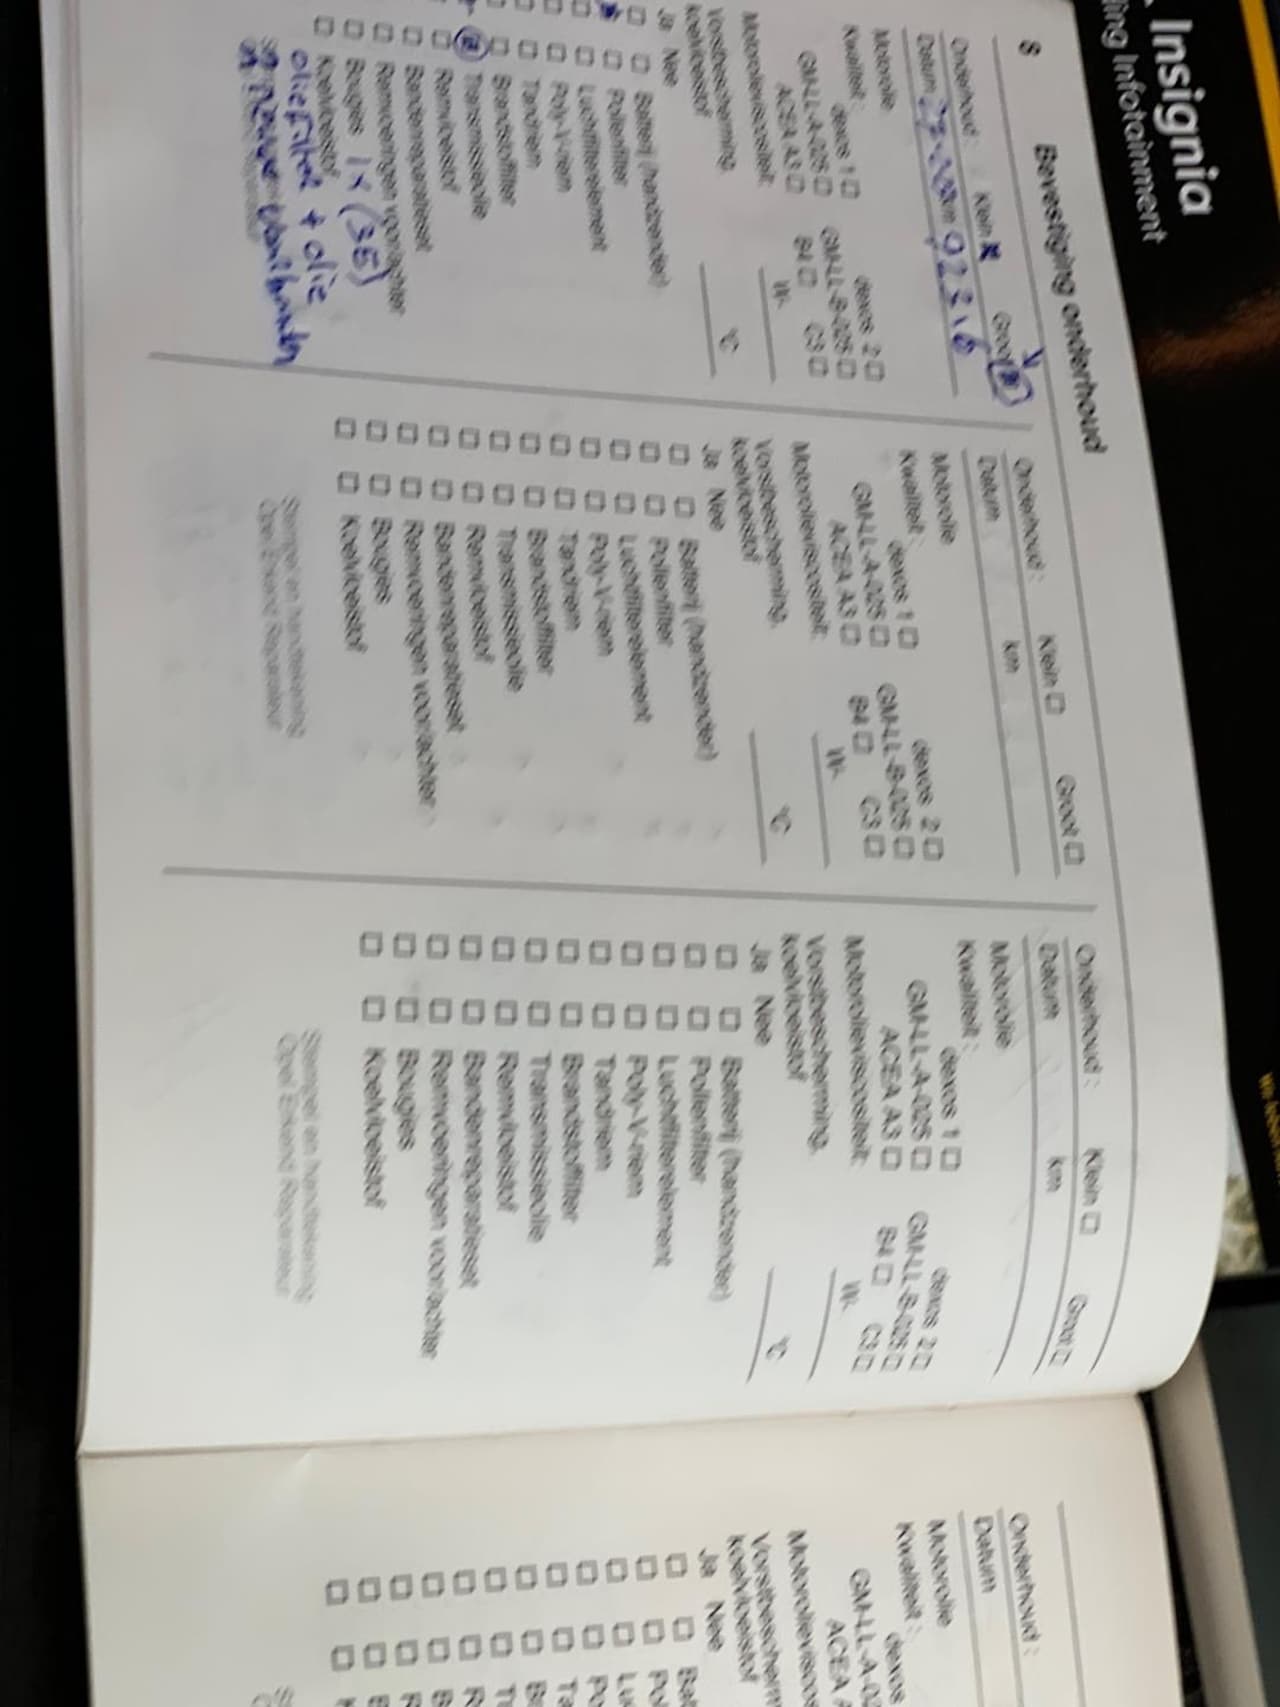 Insignia
ing Infotainment
8
Bevestiging onderhoud
Onderhoud : Klein Groot
Datum km 92316
Motorolie
Kwaliteit : dexos 1 dexos 2
GM-LL-A-025 GM-LL-B-025
ACEA A3 B4 C3
Motorolieviscositeit: W-
Vorstbescherming,
koelvloeistof °C
Ja Nee
Batterij (handzender)
Pollenfilter
Luchtfilterelement
Poly-V-riem
Tandriem
Brandstoffilter
Transmissieolie
Remvloeistof
Bandenreparatieset
Remvoeringen voor/achter
Bougies 1x (35)
Koelvloeistof
oliefilter + olie
Onderhoud : Klein Groot
Datum km
Motorolie
Kwaliteit : dexos 1 dexos 2
GM-LL-A-025 GM-LL-B-025
ACEA A3 B4 C3
Motorolieviscositeit: W-
Vorstbescherming,
koelvloeistof °C
Ja Nee
Batterij (handzender)
Pollenfilter
Luchtfilterelement
Poly-V-riem
Tandriem
Brandstoffilter
Transmissieolie
Remvloeistof
Bandenreparatieset
Remvoeringen voor/achter
Bougies
Koelvloeistof
Stempel en handtekening
Opel Erkend Reparateur
Onderhoud : Klein Groot
Datum km
Motorolie
Kwaliteit : dexos 1 dexos 2
GM-LL-A-025 GM-LL-B-025
ACEA A3 B4 C3
Motorolieviscositeit: W-
Vorstbescherming,
koelvloeistof °C
Ja Nee
Batterij (handzender)
Pollenfilter
Luchtfilterelement
Poly-V-riem
Tandriem
Brandstoffilter
Transmissieolie
Remvloeistof
Bandenreparatieset
Remvoeringen voor/achter
Bougies
Koelvloeistof
Stempel en handtekening
Opel Erkend Reparateur
Onderhoud :
Datum
Motorolie
Kwaliteit : dexos
GM-LL-A-02
ACEA A
Motorolieviscos
Vorstbescherm
koelvloeistof
Ja Nee
Bat
Pol
Lu
Po
Ta
B
T
R
B
R
B
K